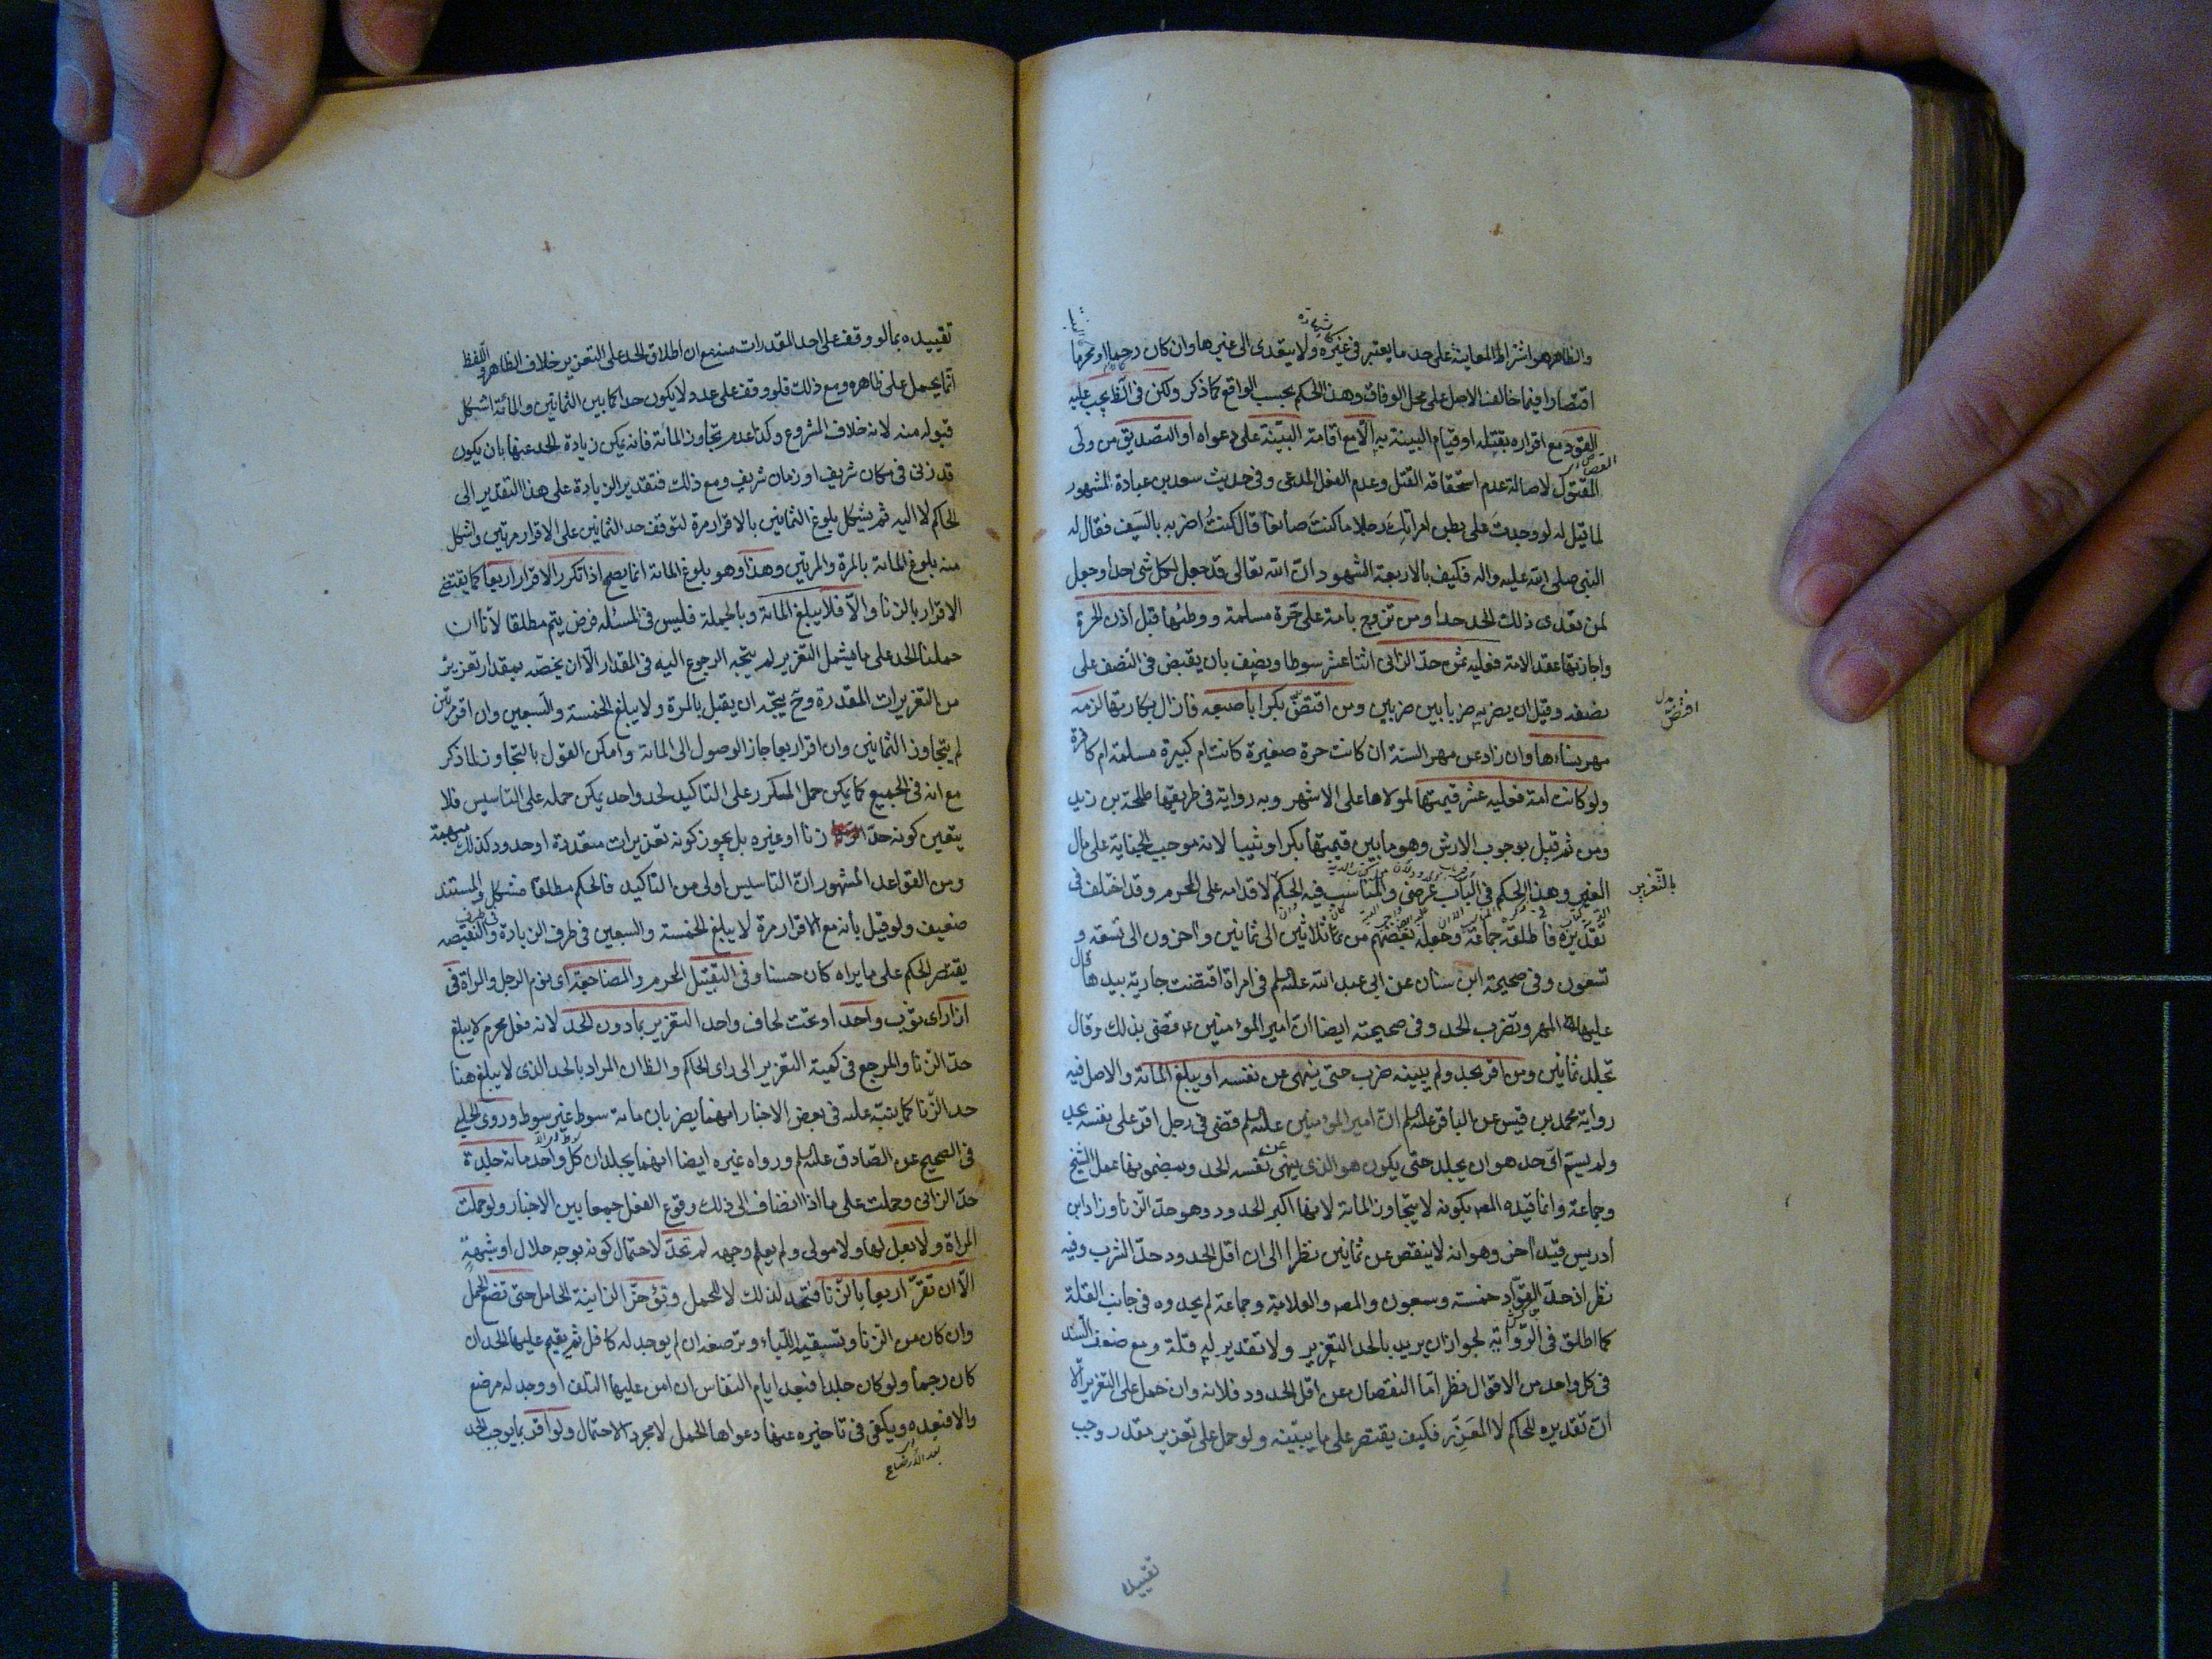 والظاهر هو اشتراط المعاينة على حد ما يعتبر في غيره ولا يتعدى الى غيرها وان كان رحما او محرما
اقتصارا فيما خالف الاصل على محل الوفاق وهذا الحكم بحسب الواقع كما ذكر ولكن في الظ يجب عليه
القود مع اقراره بقتله او قيام البينة به الا مع اقامته البينة على دعواه او التصديق من ولى
المقتول لاصالة عدم استحقاقه القتل وعدم الفعل المدعى وفي حديث سعد بن عبادة المشهور
لما قيل له لو وجدت على بطن امراتك رجلا ما كنت صانعا قال كنت اضربه بالسيف فقال له
النبى صلى الله عليه واله فكيف بالاربعة الشهود ان الله تعالى قد جعل لكل شئ حدا وجعل
لمن تعدى ذلك الحد حدا ومن تزوج بامة على حرة مسلمة ووطئها قبل اذن الحرة
واجازتها عقد الامة فعليه ثمن حد الزانى اثنا عشر سوطا ونصف بان يقبض في النصف على
نصفه وقيل ان يضربه ضربا بين ضربين ومن اقتض بكرا باصبعه فازال بكارتها لزمه
مهر نساءها وان زاد عن مهر السنة ان كانت حرة صغيرة كانت ام كبيرة مسلمة ام كافرة
ولو كانت امة فعليه عشر قيمتها لمولاها على الاشهر وبه رواية في طريقها طلحة بن زيد
ومن ثم قيل بوجوب الارش وهو ما بين قيمتها بكرا وثيبا لانه موجب الجناية على مال
الغير وهذا الحكم في الباب عرضى والمناسب فيه الحكم لاقدامه على المحرم وقد اختلف في
بالتعزير
تقديره فاطلقه جماعة وجعله بعضهم من ثلاثين الى ثمانين واخرون الى تسعة و
تسعون وفي صحيحة ابن سنان عن ابى عبد الله عليه السلم في امراة اقتضت جارية بيدها قال
عليها المهر وتضرب الحد وفي صحيحته ايضا ان امير المؤمنين ع قضى بذلك وقال
تجلد ثمانين ومن اقر بحد ولم يبينه ضرب حتى ينهى عن نفسه او يبلغ المائة والاصل فيه
رواية محمد بن قيس عن الباقر عليه السلم ان امير المؤمنين عليه السلم قضى في رجل اقر على نفسه بحد
ولم يسم اى حد هو ان يجلد حتى يكون هو الذى ينهى عن نفسه الحد وبمضمونها عمل الشيخ
وجماعة وانما قيده المص بكونه لا يتجاوز المائة لانها اكبر الحدود وهو حد الزنا وزاد ابن
ادريس قيدا اخر وهو انه لا ينقص عن ثمانين نظرا الى ان اقل الحدود حد الشرب وفيه
نظر اذ حد القواد خمسة وسبعون والمص والعلامة وجماعة لم يحدوه في جانب القلة
كما اطلق في الرواية لجواز ان يريد بالحد التعزير ولا تقدير له قلة ومع ضعف السند
في كل واحد من الاقوال نظر اما النقصان عن اقل الحدود فلانه وان حمل على التعزير الا
ان تقديره للحاكم لا المعزر فكيف يقتصر على ما يبينه ولو حمل على تعزير مقدر وجب
تقييده
تقييده بما لو وقف على احد المقدرات منه مع ان اطلاق الحد على التعزير خلاف الظاهر واللفظ
انما يحمل على ظاهره ومع ذلك فلو وقف على عدد لا يكون حدا كما بين الثمانين والمائة اشكل
قبوله منه لانه خلاف المشروع وكذا عدم تجاوز المائة فانه يمكن زيادة الحد عنها بان يكون
قد زنى في مكان شريف او زمان شريف ومع ذلك فتقدير الزيادة على هذا التقدير الى
الحاكم لا اليه ثم يشكل بلوغ الثمانين بالاقرار مرة لتوقف حد الثمانين على الاقرار مرتين واشكل
منه بلوغ المائة بالمرة والمرتين وهذا وهو بلوغ المائة انما يصح اذا تكرر الاقرار اربعا كما يقتضى
الاقرار بالزنا والا فلا يبلغ المائة وبالجملة فليس في المسئلة فرض يتم مطلقا لانا ان
حملنا الحد على ما يشمل التعزير لم يتجه الرجوع اليه في المقدار الا ان نخصه بمقدار تعزير
من التعزيرات المقدرة وح يتجه ان يقبل بالمرة ولا يبلغ الخمسة والسبعين وان اقر مرتين
لم يتجاوز الثمانين وان اقر اربعا جاز الوصول الى المائة وامكن القول بالتجاوز لما ذكر
مع انه في الجميع كما يمكن حمل المكرر على التاكيد لحد واحد يمكن حمله على التاسيس فلا
يتعين كونه حد زنا او غيره بل يجوز كونه تعزيرات متعددة او حدود كذلك مبهمة
ومن القواعد المشهور ان التاسيس اولى من التاكيد فالحكم مطلقا مشكل والمستند
ضعيف ولو قيل بانه مع الاقرار مرة لا يبلغ الخمسة والسبعين في طرف الزيادة وفي طرف النقيصه
يقتصر الحكم على ما يراه كان حسنا وفي التقبيل المحرم والمضاجعة اى نوم الرجل والمراة في
ازار اى ثوب واحد او تحت لحاف واحد التعزير بما دون الحد لانه فعل محرم لا يبلغ
حد الزنا والمرجع في كمية التعزير الى راى الحاكم والظ ان المراد بالحد الذى لا يبلغ هنا
حد الزنا كما ينبه عليه في بعض الاخبار انهما يضربان مائة سوط غير سوط وروى الحلبى
في الصحيح عن الصادق عليه السلم ورواه غيره ايضا انهما يجلدان كل واحد مائة جلدة
حد الزانى وحملت على ما اذا انضاف الى ذلك وقوع الفعل جمعا بين الاخبار ولو حملت
المراة ولا بعل لها ولا مولى ولم يعلم وجهه لم تحد لاحتمال كونه بوجه حلال او شبهة
الا ان تقر اربعا بالزنا فتحد لذلك لا للحمل وتؤخر الزانية الحامل حتى تضع الحمل
وان كان من الزنا وتسقيه اللباء وترضعه ان لم يوجد له كافل ثم يقيم عليها الحد ان
كان رجما ولو كان جلدا فبعد ايام النفاس ان امن عليها التلف او وجد له مرضع
والا فبعده ويكفى في تاخيره عنها دعواها الحمل لا مجرد الاحتمال ولو اقر بما يوجب الحد
بعد الارضاع